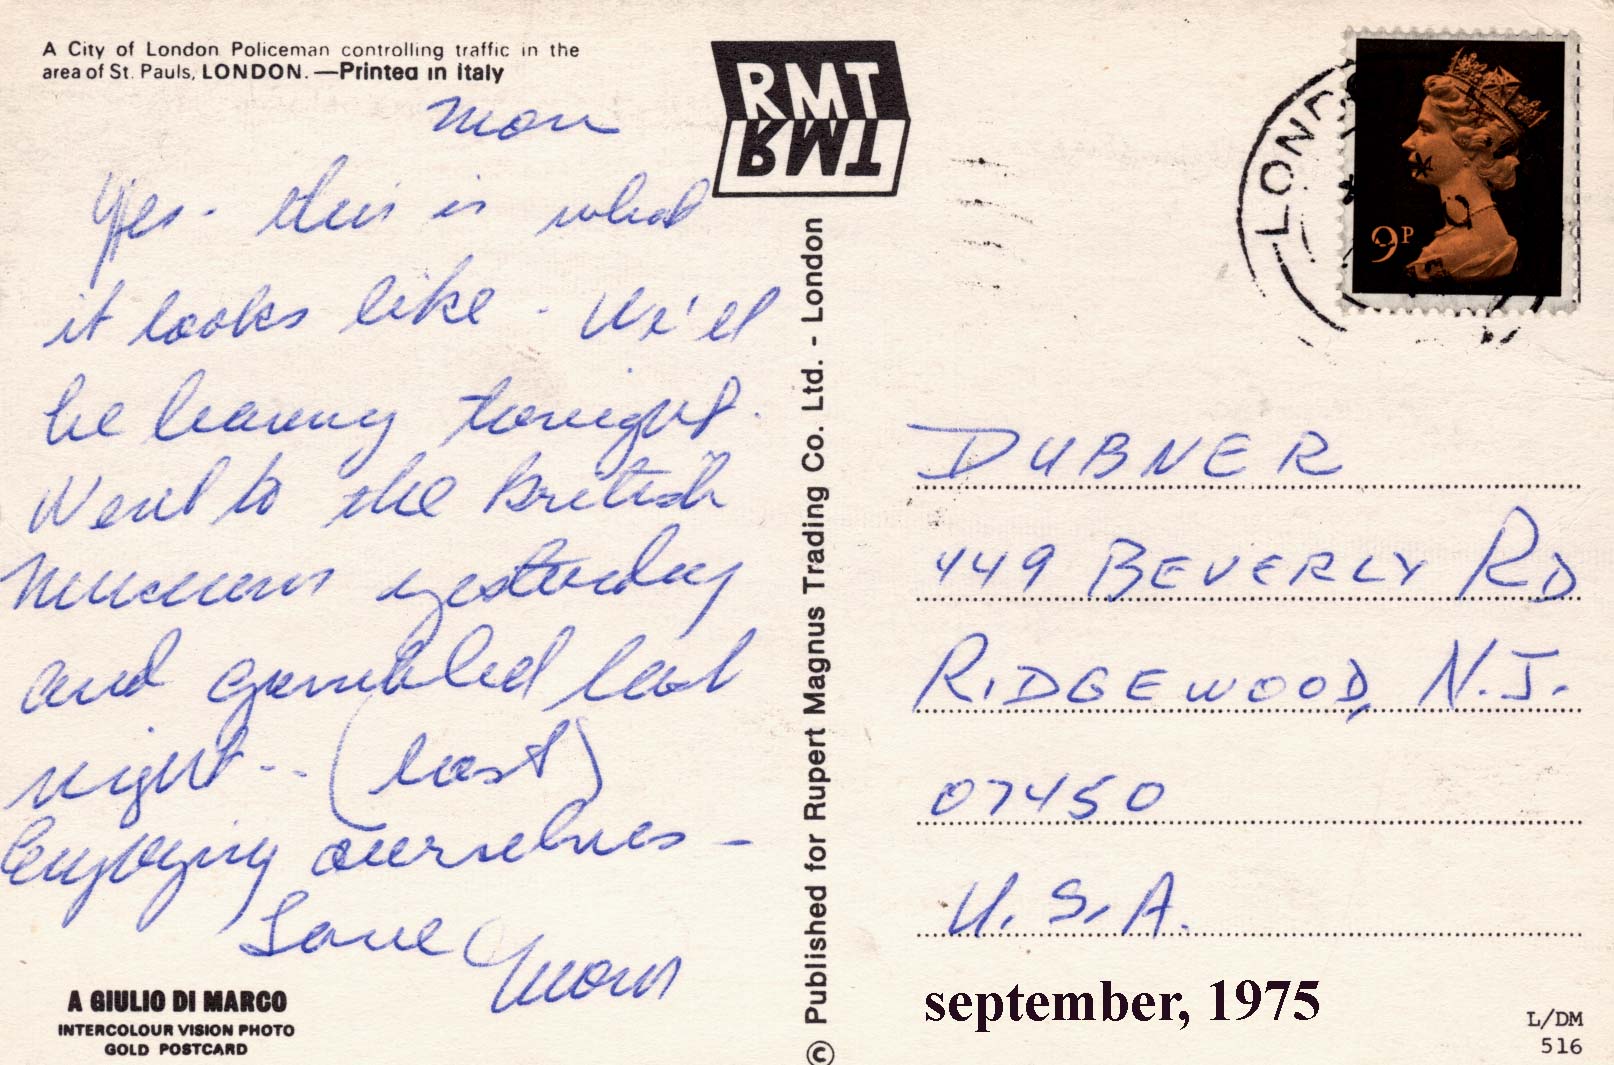 A City of London Policeman controlling traffic in the
area of St. Pauls, LONDON.—Printed in Italy
Mon
Yes - this is what
it looks like - We'll
be leaving tonight.
Went to the British
Museum yesterday
and gambled last
night -- (lost)
Enjoying ourselves -
Love
Mom
A GIULIO DI MARCO
INTERCOLOUR VISION PHOTO
GOLD POSTCARD
RMT
RMT
© Published for Rupert Magnus Trading Co. Ltd. - London
LOND
9P
DUBNER
449 BEVERLY RD
RIDGEWOOD, N.J.
07450
U.S.A.
september, 1975
L/DM
516